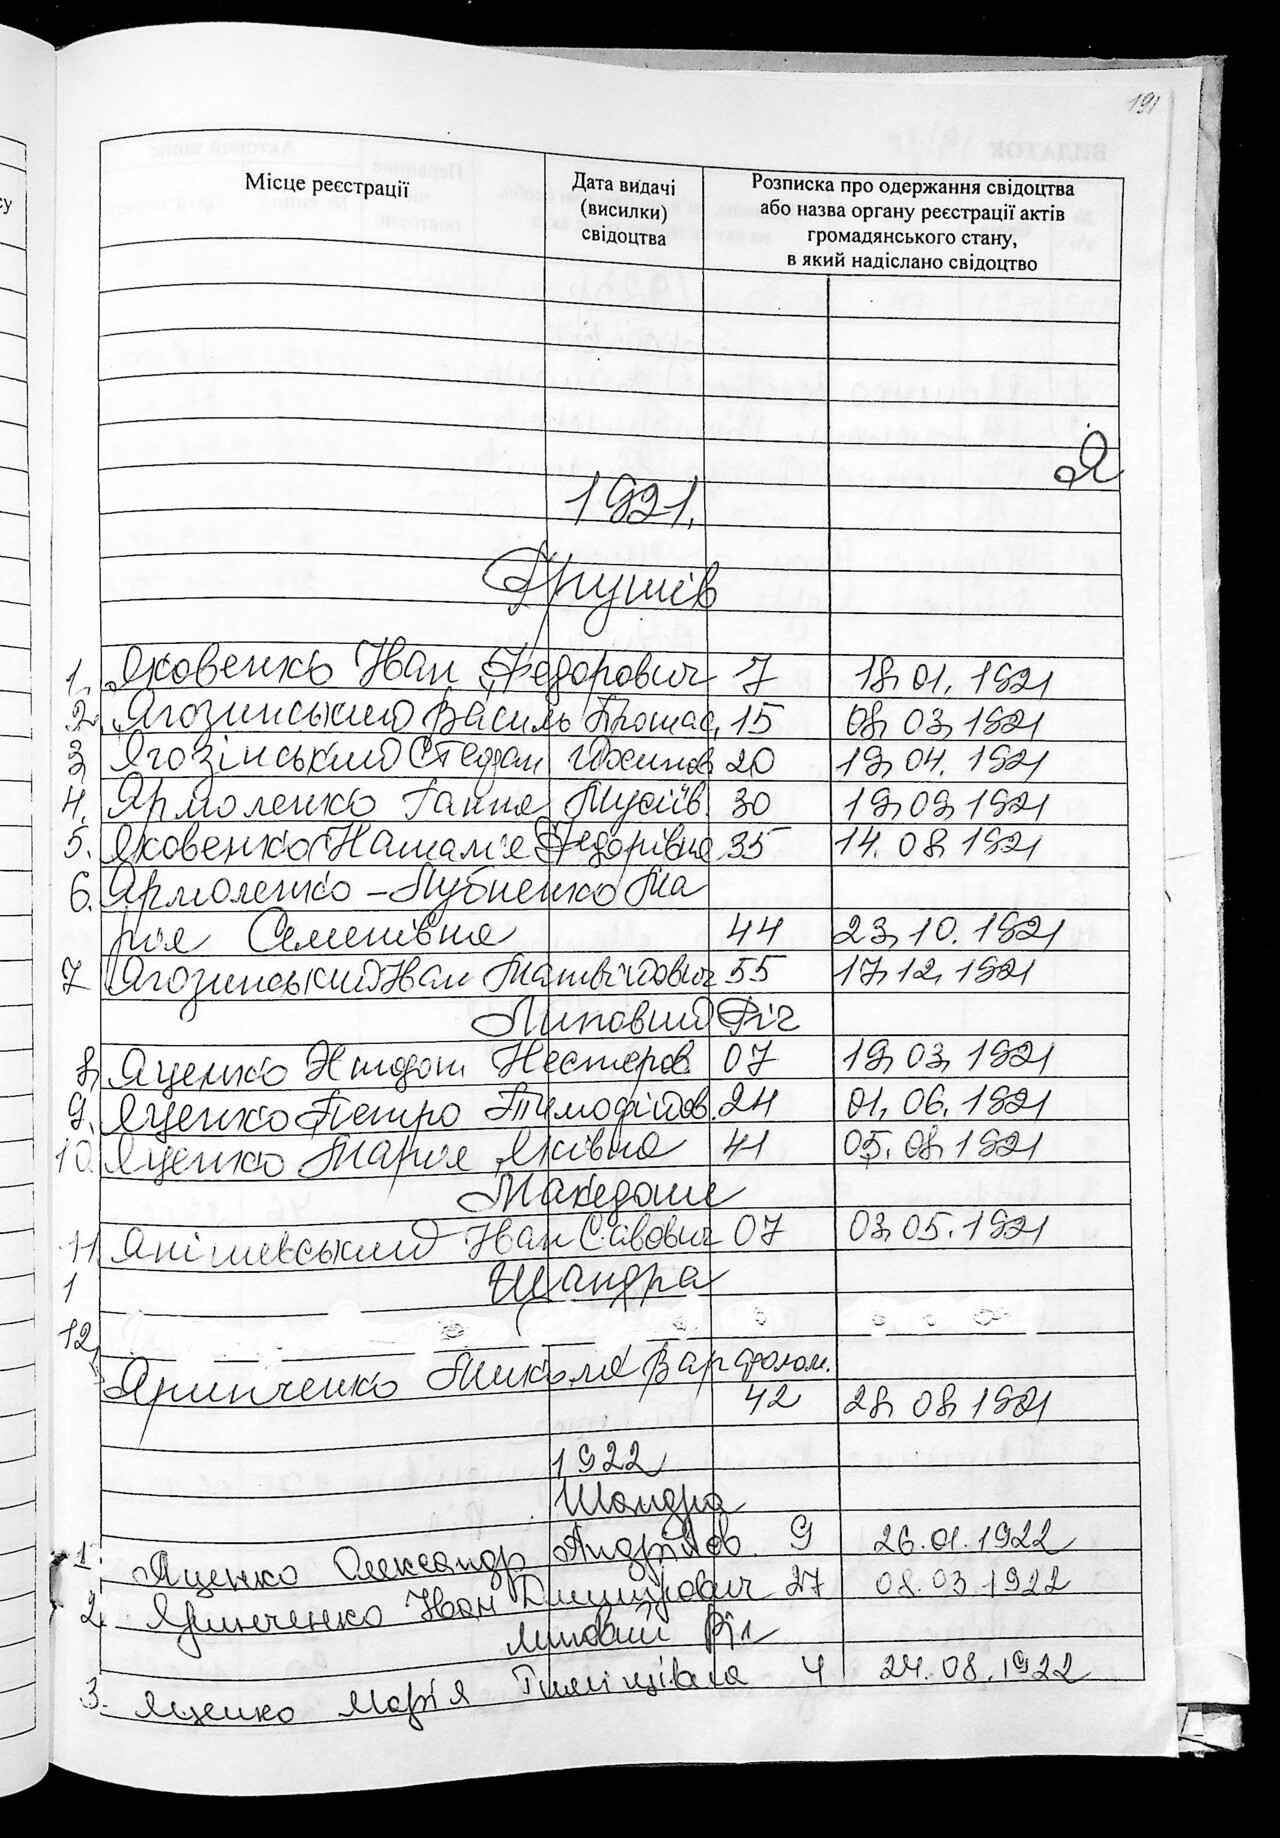 191
Місце реєстрації
Дата видачі
(висилки)
свідоцтва
Розписка про одержання свідоцтва
або назва органу реєстрації актів
громадянського стану,
в який надіслано свідоцтво
Я
1921.
Грушів
1. Яковенко Іван Федорович 7 18.01.1921
2. Ягозинський Василь 15 08.03.1921
3 Ягозінський Стефан 20 19.04.1921
4. Ярмоленко Ганна Мусіїв. 30 19.09.1921
5. Яковенко Наталія Федорівна 35 14.08.1921
6. Ярмоленко - Лубненко Ма
рія Семенівна 44 23.10.1921
7 Ягозинський Іван Матвійович 55 17.12.1921
Липовий Ріг
8. Яценко Нестеров. 07 19.03.1921
9. Яценко Петро Тимофійов. 24 01.06.1921
10. Яценко Марія Яківна 41 05.08.1921
Македони
11. Янішевський Іван Савович 07 03.05.1921
1 Шандра
12.
Яринченко Микола Варфолом.
42 28.08.1921
1922
Шандра
1. Яценко Олександр Андріїов. 9 26.01.1922
2. Яринченко Іван Дмитрович 27 08.03.1922
Липовий Ріг
3. Яценко Марія 4 24.08.1922